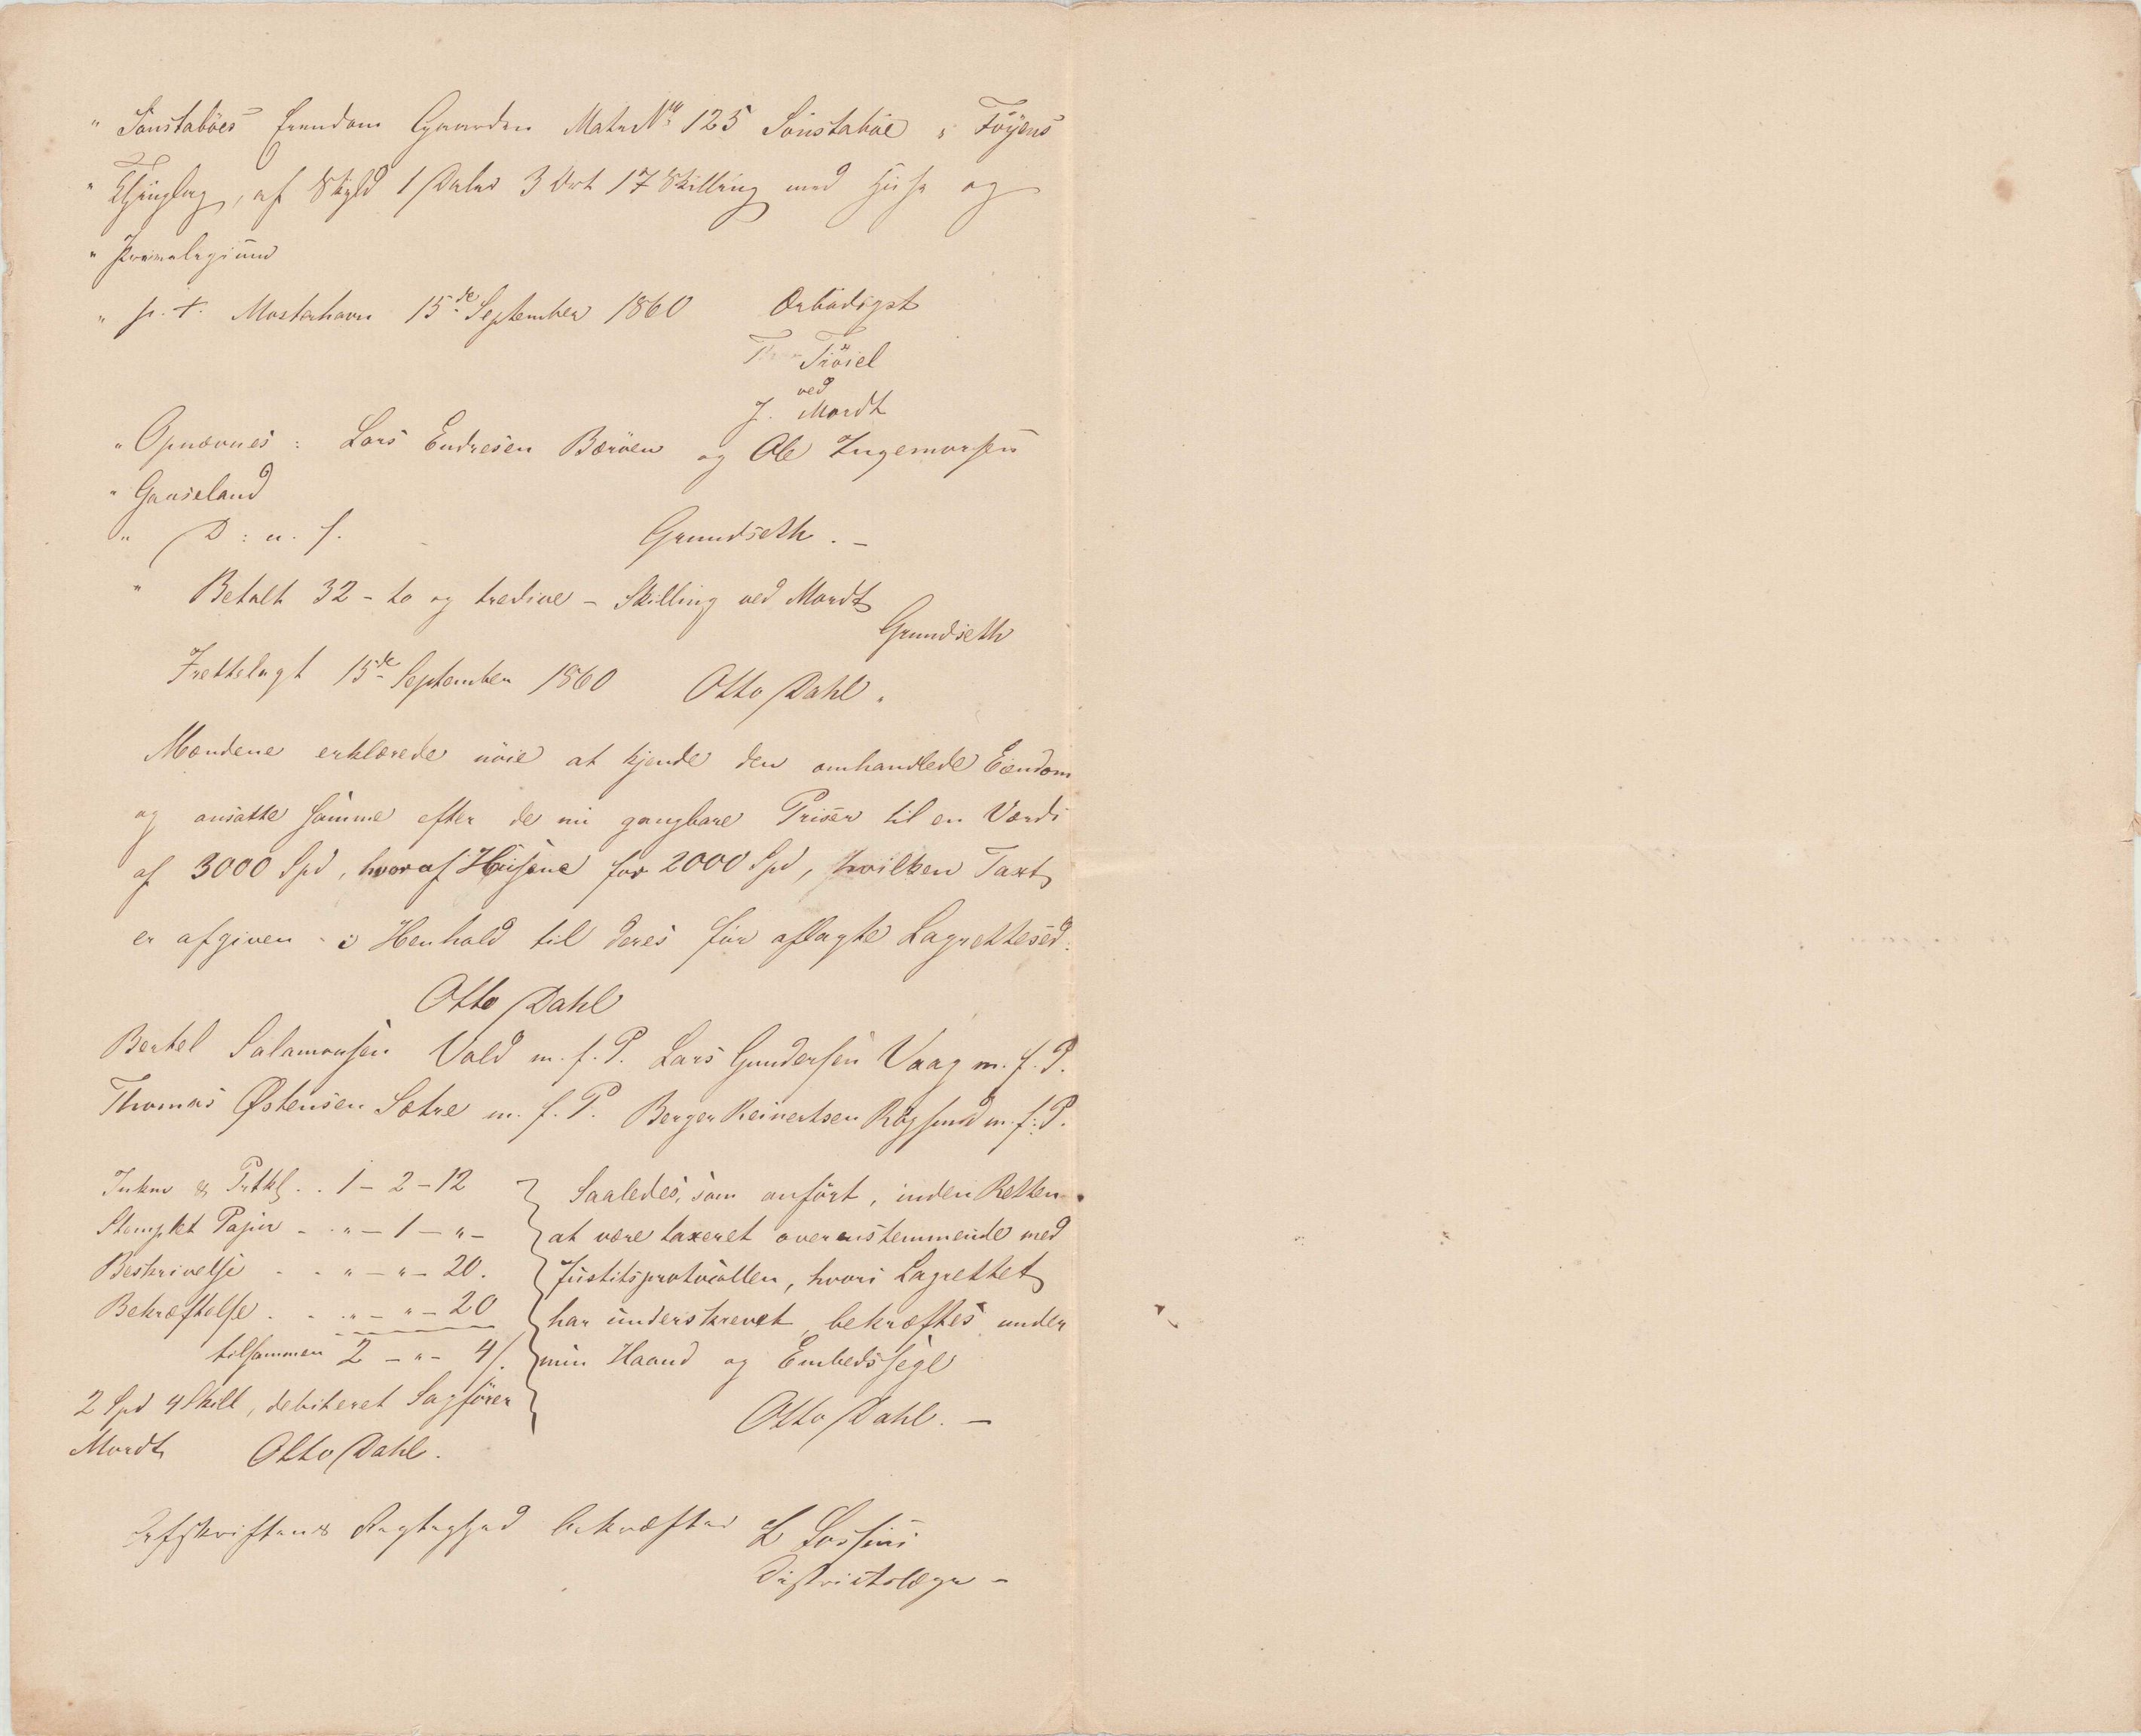 " Sønstabøes Eiendom Gaarden Matr Nr 125 Sønstabøe i Føyens
" Thinglag, af Skyld 1 Daler 3 Ort 17 Skilling med Huse og
" p. t. Mosterhavn 15de September 1860 Ærbødigst
Trøiel
ved
J. Mordt
" Opnævnes: Lars Endresen Bærøen og Ole Ingemorsen
" Gaaseland
" D: u. s. Grundseth. –
" Betalt 32 – to og tredive – Skilling ved Mordt
Grundseth
Irettelagt 15de September 1860 Otto Dahl.
Mændene erklærede nøie at kjende den omhandlede Eiendom
og ansatte samme efter de nu gangbare Priser til en Værdi
af 3000 Spd, hvoraf Husene for 2000 Spd, hvilken Taxt
er afgiven i Henhold til deres før aflagte Lagrettesed.
Otto Dahl
Bertel Salamonsen Vold m. f. P. Lars Gundersen Vaag m. f. P.
Thomas Østensen Sætre m. f. P. Berger Reinertsen Røgsund m. f. P.
Inkm & Prtkl . . 1 – 2 – 12
Stemplet Papir – . " – 1 – " –
Beskrivelse . . " – " – 20.
Bekræftelse . . " – " – 20
tilsammen 2 – " – 4/.
2 Spd 4 Skill, debiteret Sagfører
Mordt Otto Dahl.
Saaledes, som anført, inden Retten
at være taxeret overensstemmende med
Justitsprotocollen, hvori Lagrettet
har underskrevet, bekræftes under
min Haand og Embedssegl
Otto Dahl. –
Afskriftens Rigtighed bekræfter L Lossius
Districtslæge –